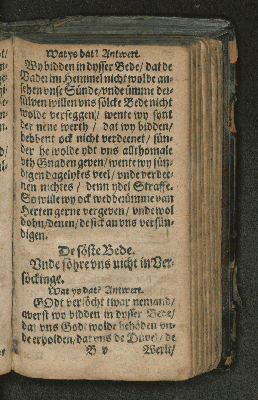 Wat ys dat? Antwert.
Wy bidden in dysser Bede / dat de
Vader im Hemmel nicht wolde an-
sehen vnse Sünde / vnde ümme der-
sülven willen vns sölcke Bede nicht
wolde verseggen / wente wy synt
der nene werth / dat wy bidden /
hebbent ock nicht verdeenet / sün-
der he wolde ydt vns allthomale
vth Gnaden geven / wente wy sün-
digen dagelykes veel / vnde verdee-
nen nichtes / denn ydel Straffe.
So wille wy ock wedderümme van
Herten gerne vergeven / vnde wol
dohn / denen / de sick an vns versün-
digen.
De söste Bede.
Vnde föhre vns nicht in Ver-
söckinge.
Wat ys dat? Antwert.
GOdt versöcht twar nemand /
averst wy bidden in dysser Bede /
dat vns Godt wolde behöden vn-
de erholden / dat vns de Düvel / de
B v Werlt /